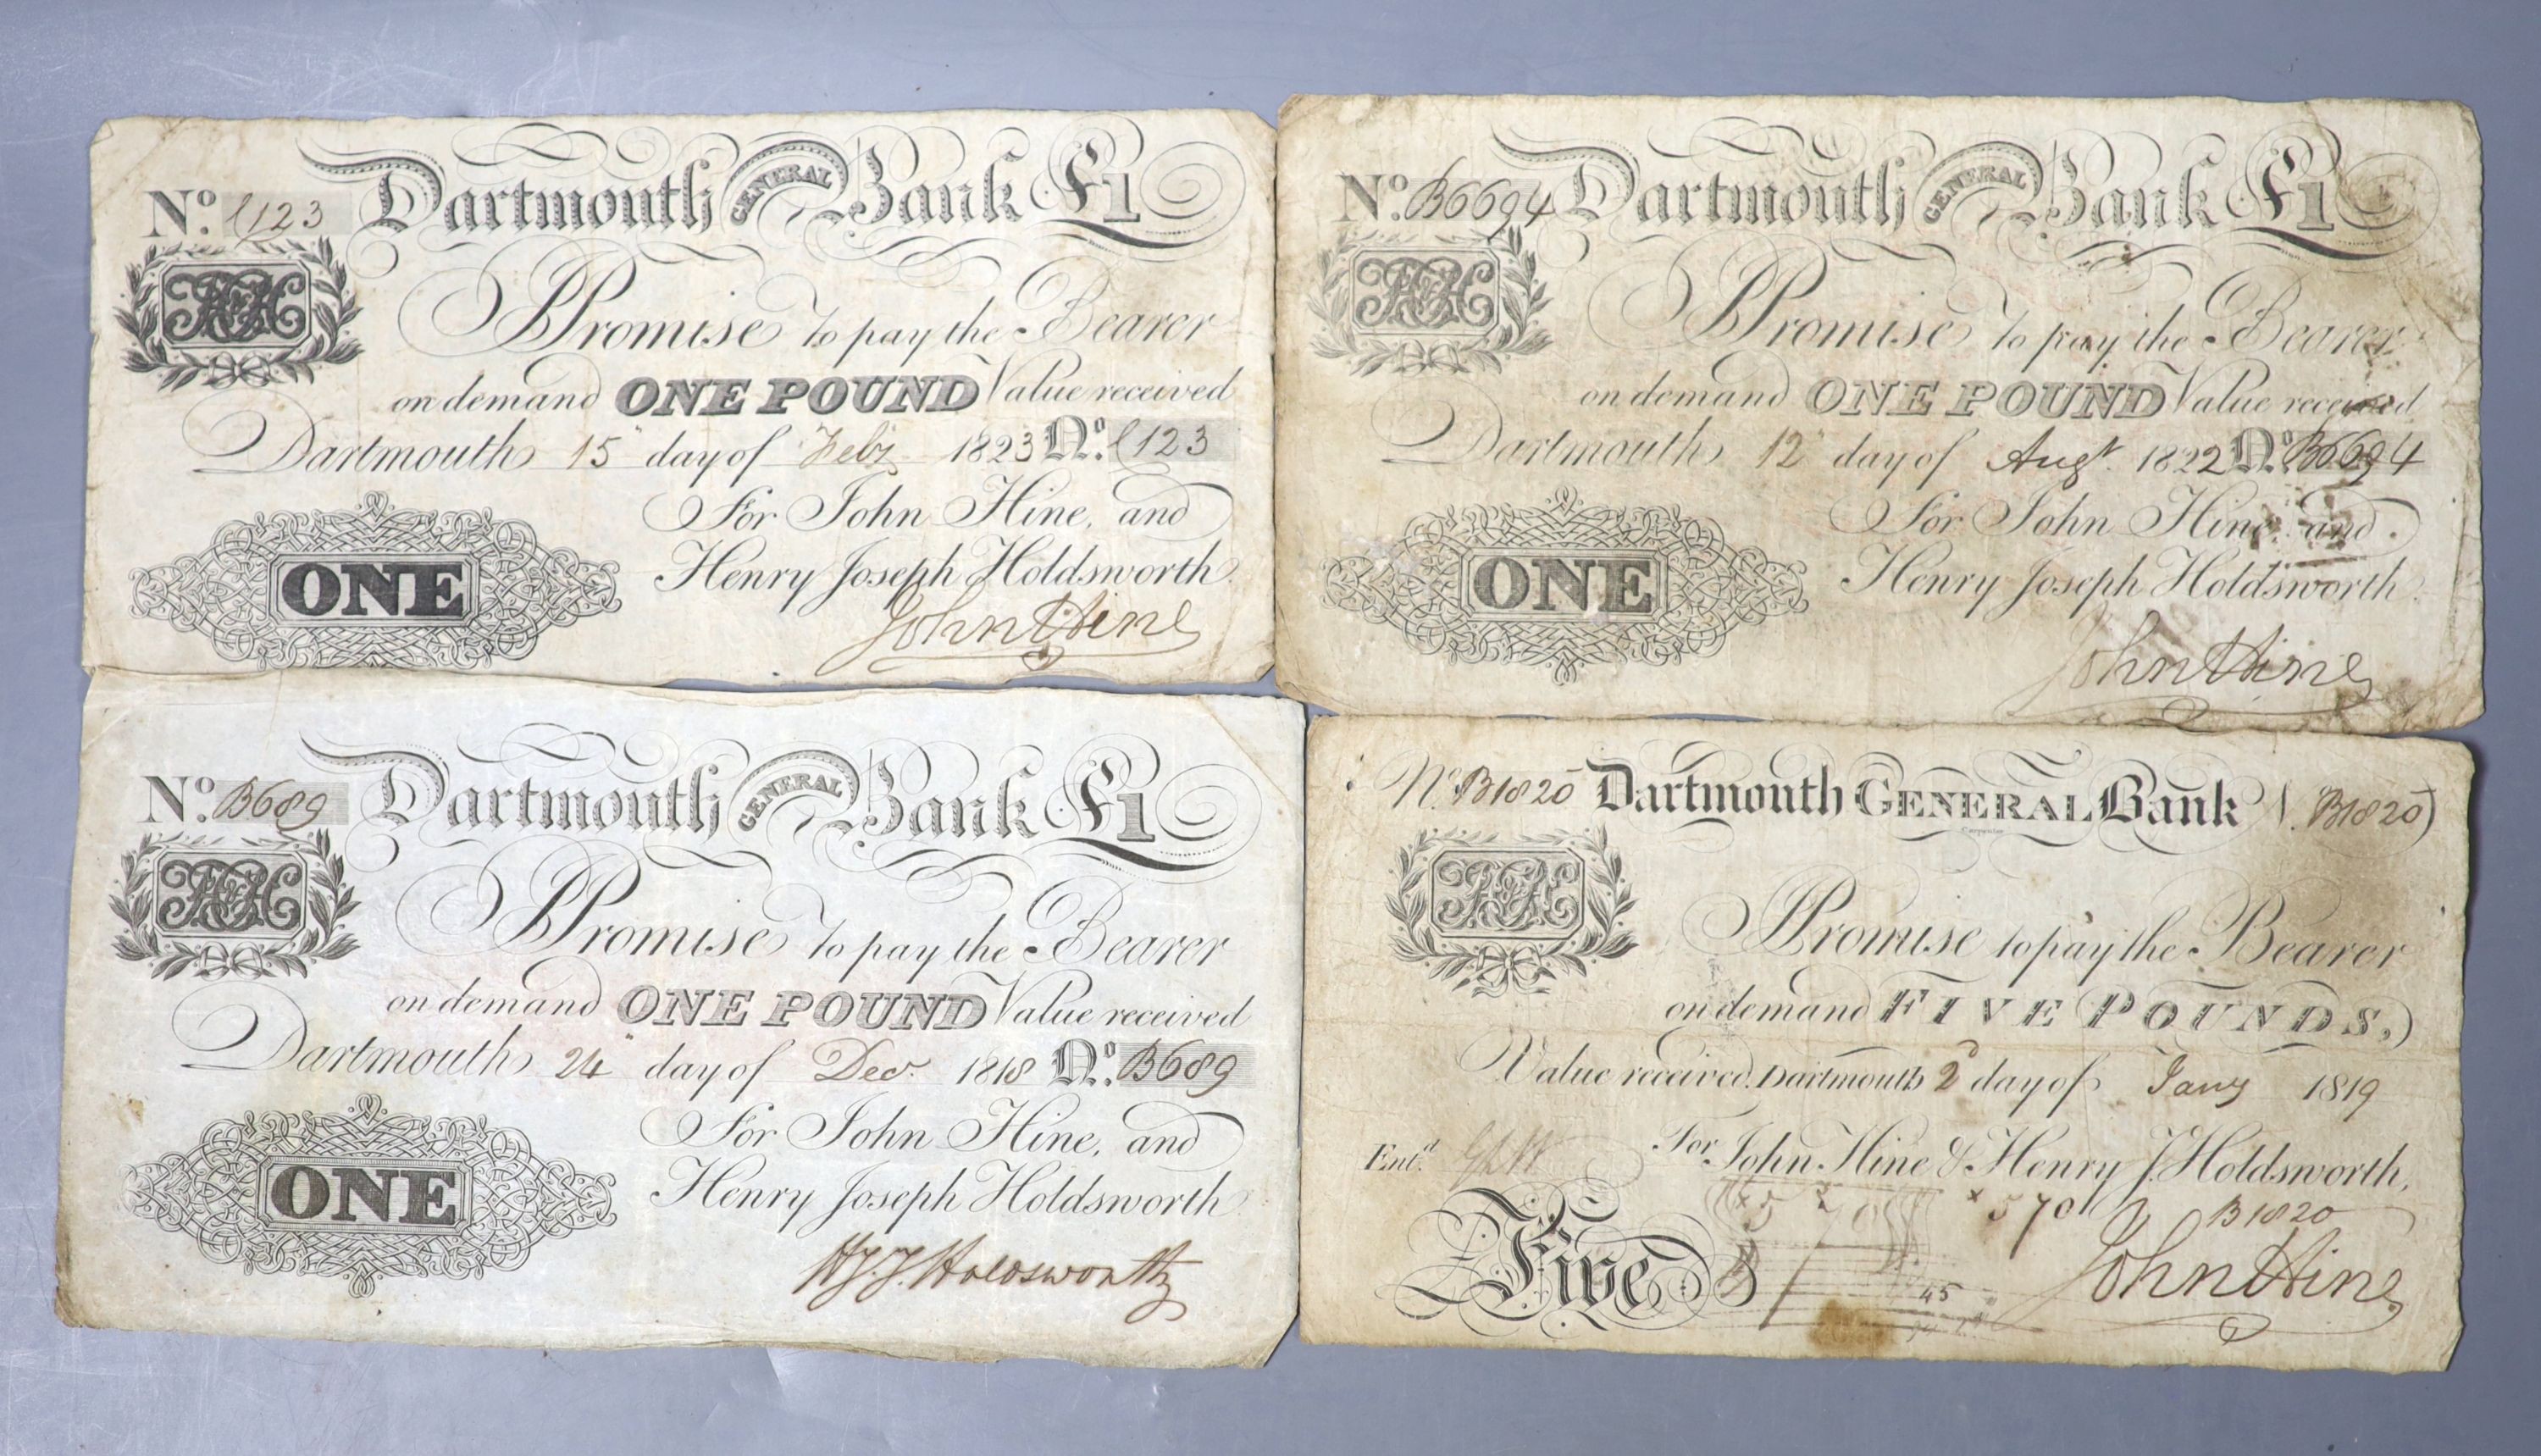 Nº. C123 Dartmouth GENERAL Bank £1
H&H
I Promise to pay the Bearer
on demand ONE POUND Value received
Dartmouth 15 day of Feby 1823 Nº. C123
For John Hine, and
Henry Joseph Holdsworth
ONE
John Hine
Nº. B6694 Dartmouth GENERAL Bank £1
H&H
I Promise to pay the Bearer
on demand ONE POUND Value received
Dartmouth 12 day of Augt. 1822 Nº. B6694
For John Hine, and
Henry Joseph Holdsworth
ONE
John Hine
Nº. B689 Dartmouth GENERAL Bank £1
H&H
I Promise to pay the Bearer
on demand ONE POUND Value received
Dartmouth 24 day of Dec. 1818 Nº. B689
For John Hine, and
Henry Joseph Holdsworth
ONE
H.J. Holdsworth
Nº. B1820 Dartmouth GENERAL Bank (B1820)
Carpenter
H&H
I Promise to pay the Bearer
on demand FIVE POUNDS,
Value received Dartmouth 2d day of Jany 1819
For John Hine & Henry J. Holdsworth,
Entd.
x 5701 B1820
Five
45
John Hine